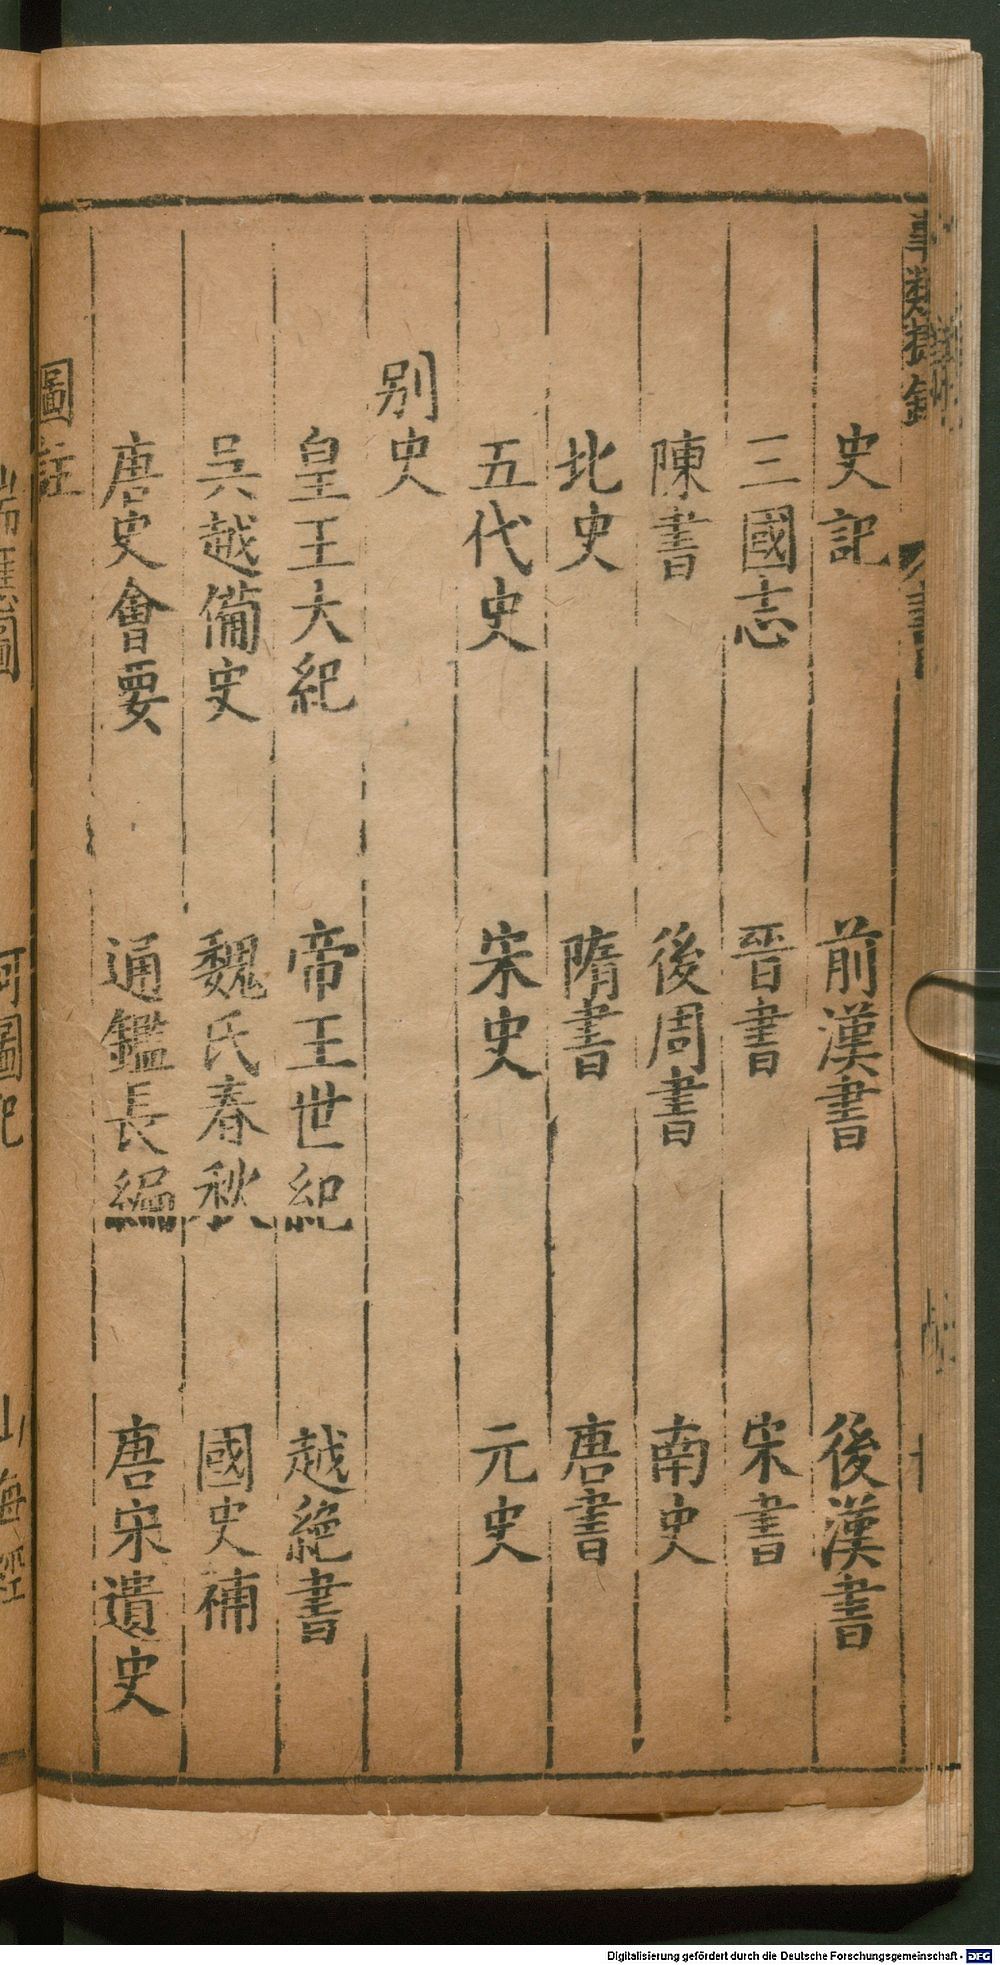 史記 前漢書 後漢書
三國志 晉書 宋書
陳書 後周書 南史
北史 隋書 唐書
五代史 宋史 元史
別史
皇王大紀 帝王世紀 越絶書
吳越備史 魏氏春秋 國史補
唐史會要 通鑑長編 唐宋遺史
圖註
瑞應圖 河圖 山海經
Digitalisierung gefördert durch die Deutsche Forschungsgemeinschaft - DFG